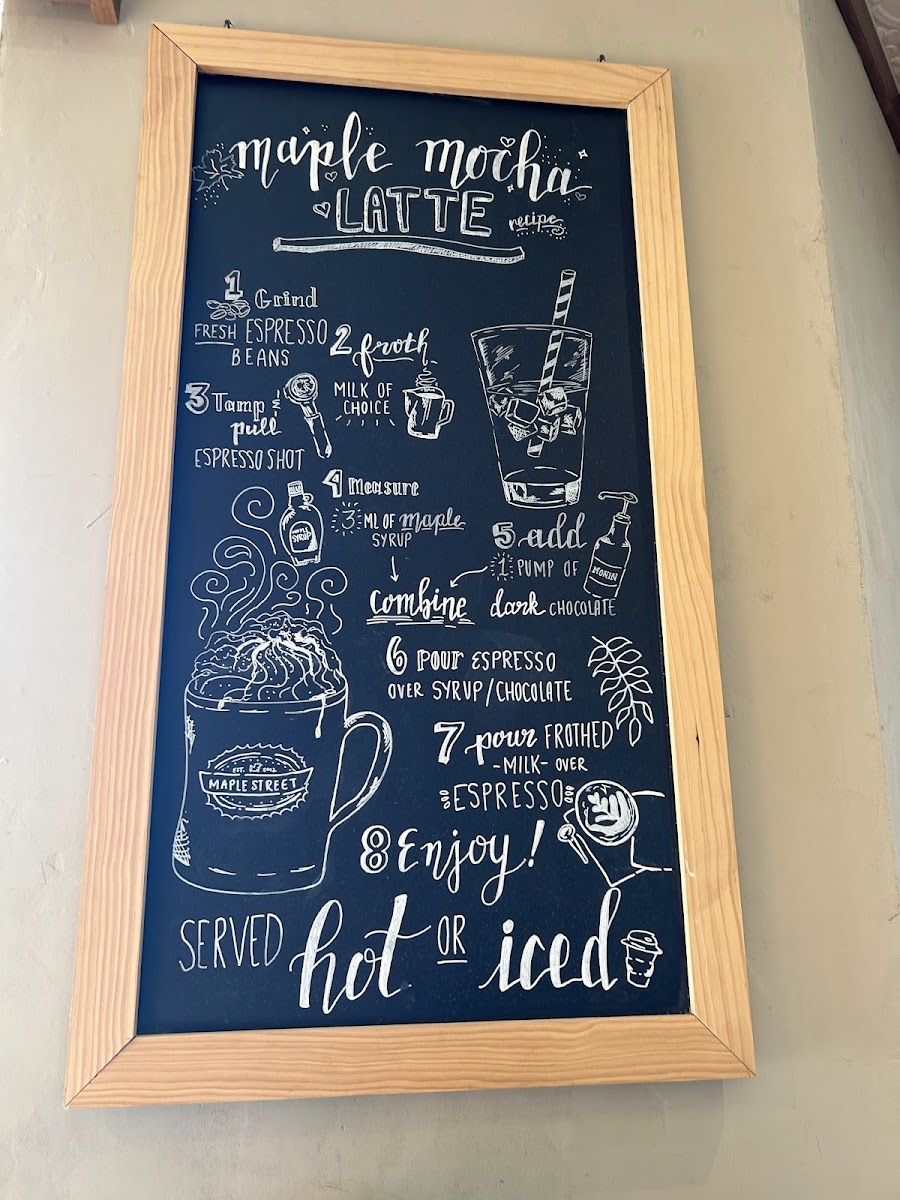 maple mocha
LATTE recipe
1 Grind
FRESH ESPRESSO
BEANS
2 froth
MILK OF
CHOICE
3 Tamp &
pull
ESPRESSO SHOT
4 measure
3 ML OF maple
SYRUP
MAPLE
SYRUP
5 add
1 PUMP OF
dark CHOCOLATE
MONIN
combine
6 POUR ESPRESSO
OVER SYRUP/CHOCOLATE
7 pour FROTHED
-MILK- OVER
ESPRESSO
EST. 2012
MAPLE STREET
8 Enjoy!
SERVED hot OR iced